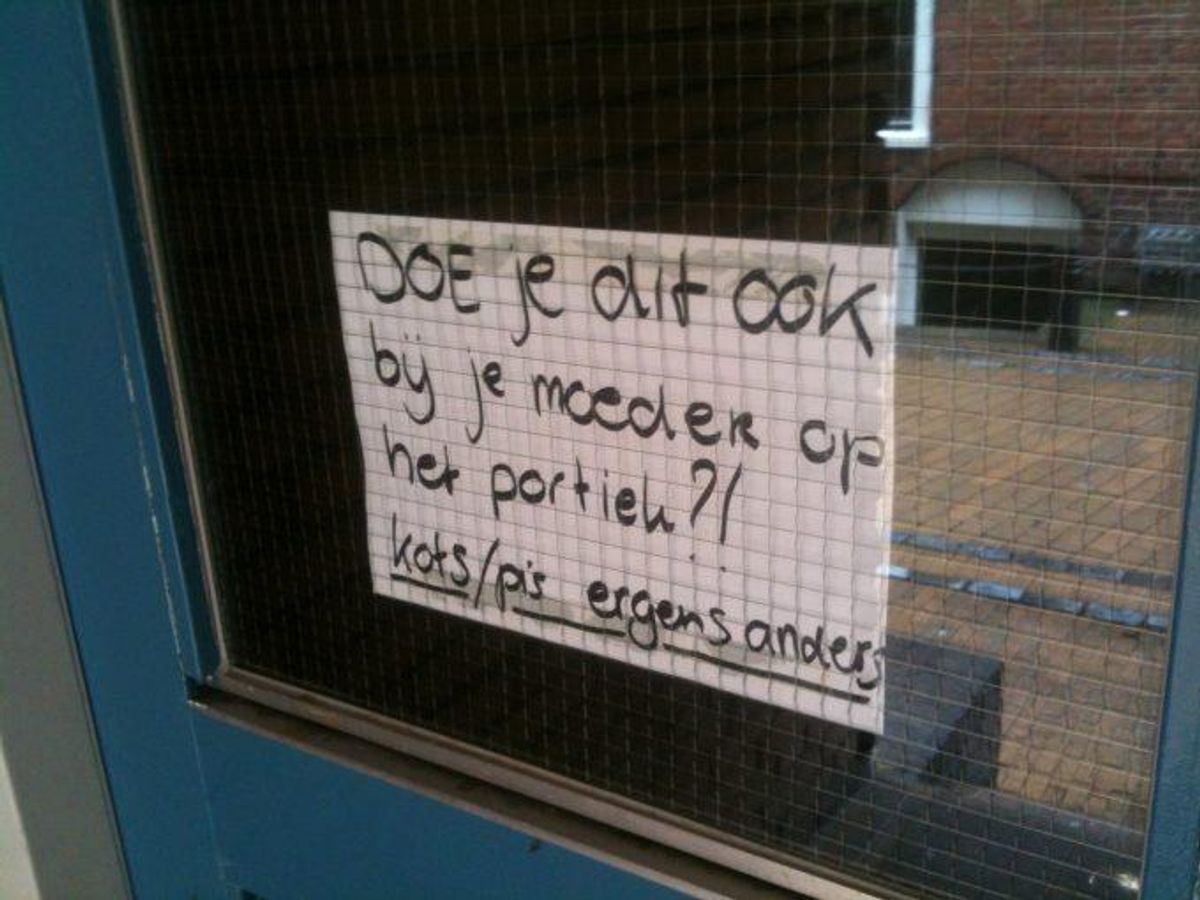 DOE je dit ook
bij je moeder op
het portiek?!
kots/pis ergens anders